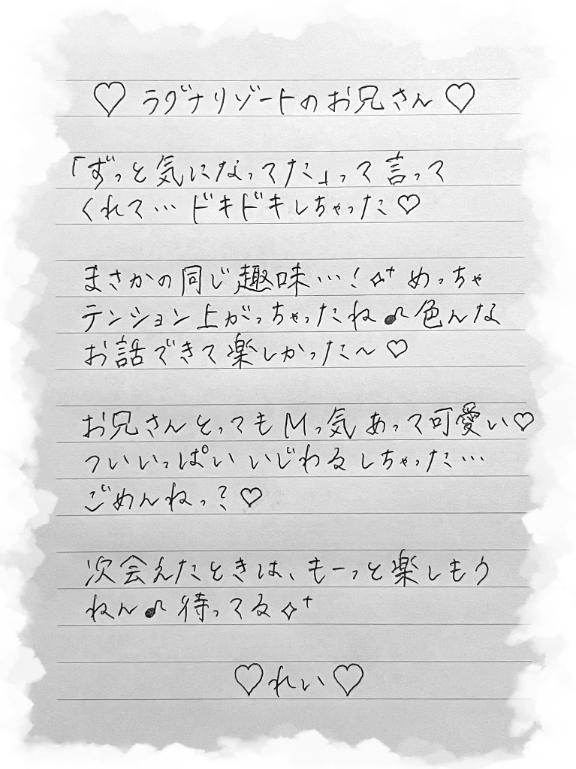 ♡ ラグナリゾートのお兄さん ♡
「ずっと気になってた」って言って
くれて… ドキドキしちゃった♡
まさかの同じ趣味…!✧⁺ めっちゃ
テンション上がっちゃったね♪色んな
お話できて楽しかった〜♡
お兄さんとってもMっ気あって可愛い♡
ついいっぱいいじわるしちゃった…
ごめんねっ?♡
次会えたときは、もーっと楽しもう
ねん♪待ってる✧⁺
♡れい♡